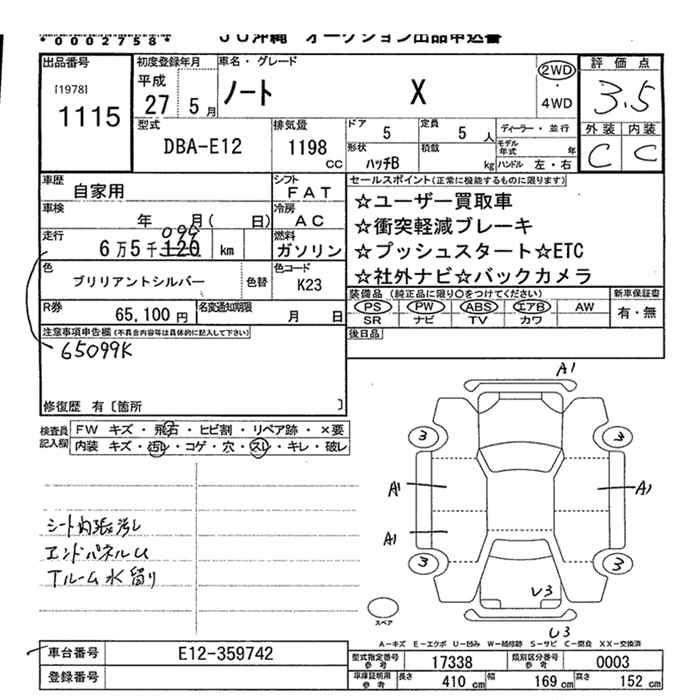 *0002758*
JU沖縄 オークション出品申込書
出品番号
[1978]
1115
初度登録年月
平成
27 5月
車名・グレード
ノート X
2WD
・
4WD
評価点
3.5
外装 内装
C C
型式
DBA-E12
排気量
1198
CC
ドア
5
定員
5 人
ディーラー・並行
形状
ハッチB
積載
kg
モデル年式 年
ハンドル 左・右
車歴
自家用
シフト
FAT
車検
年 月( 日)
冷房
AC
走行
099
6万5千120 km
燃料
ガソリン
色
ブリリアントシルバー
色替
色コード
K23
R券
65,100円
名変通知期限
月 日
セールスポイント(正常に機能するものに限ります)
☆ユーザー買取車
☆衝突軽減ブレーキ
☆プッシュスタート☆ETC
☆社外ナビ☆バックカメラ
装備品(純正品に限り○をつけてください)
新車保証書
PS PW ABS エアB AW
SR ナビ TV カワ
有・無
後日品
注意事項申告欄(不具合内容等は具体的に記入して下さい)
65099K
修復歴 有〔箇所 〕
検査員記入欄
FW キズ・飛石・ヒビ割・リペア跡・×要
内装 キズ・汚レ・コゲ・穴・スレ・キレ・破レ
シート内張汚レ
エンドパネルU
Tルーム水留り
A1
3 3
A1 A1
A1
3 3
U3
スペア
U3
A-キズ E-エクボ U-凹み W-補修跡 S-サビ C-腐食 XX-交換済
車台番号
E12-359742
登録番号
型式指定番号
参考
17338
類別区分番号
参考
0003
車庫証明用
参考
長さ 410 cm
幅 169 cm
高さ 152 cm